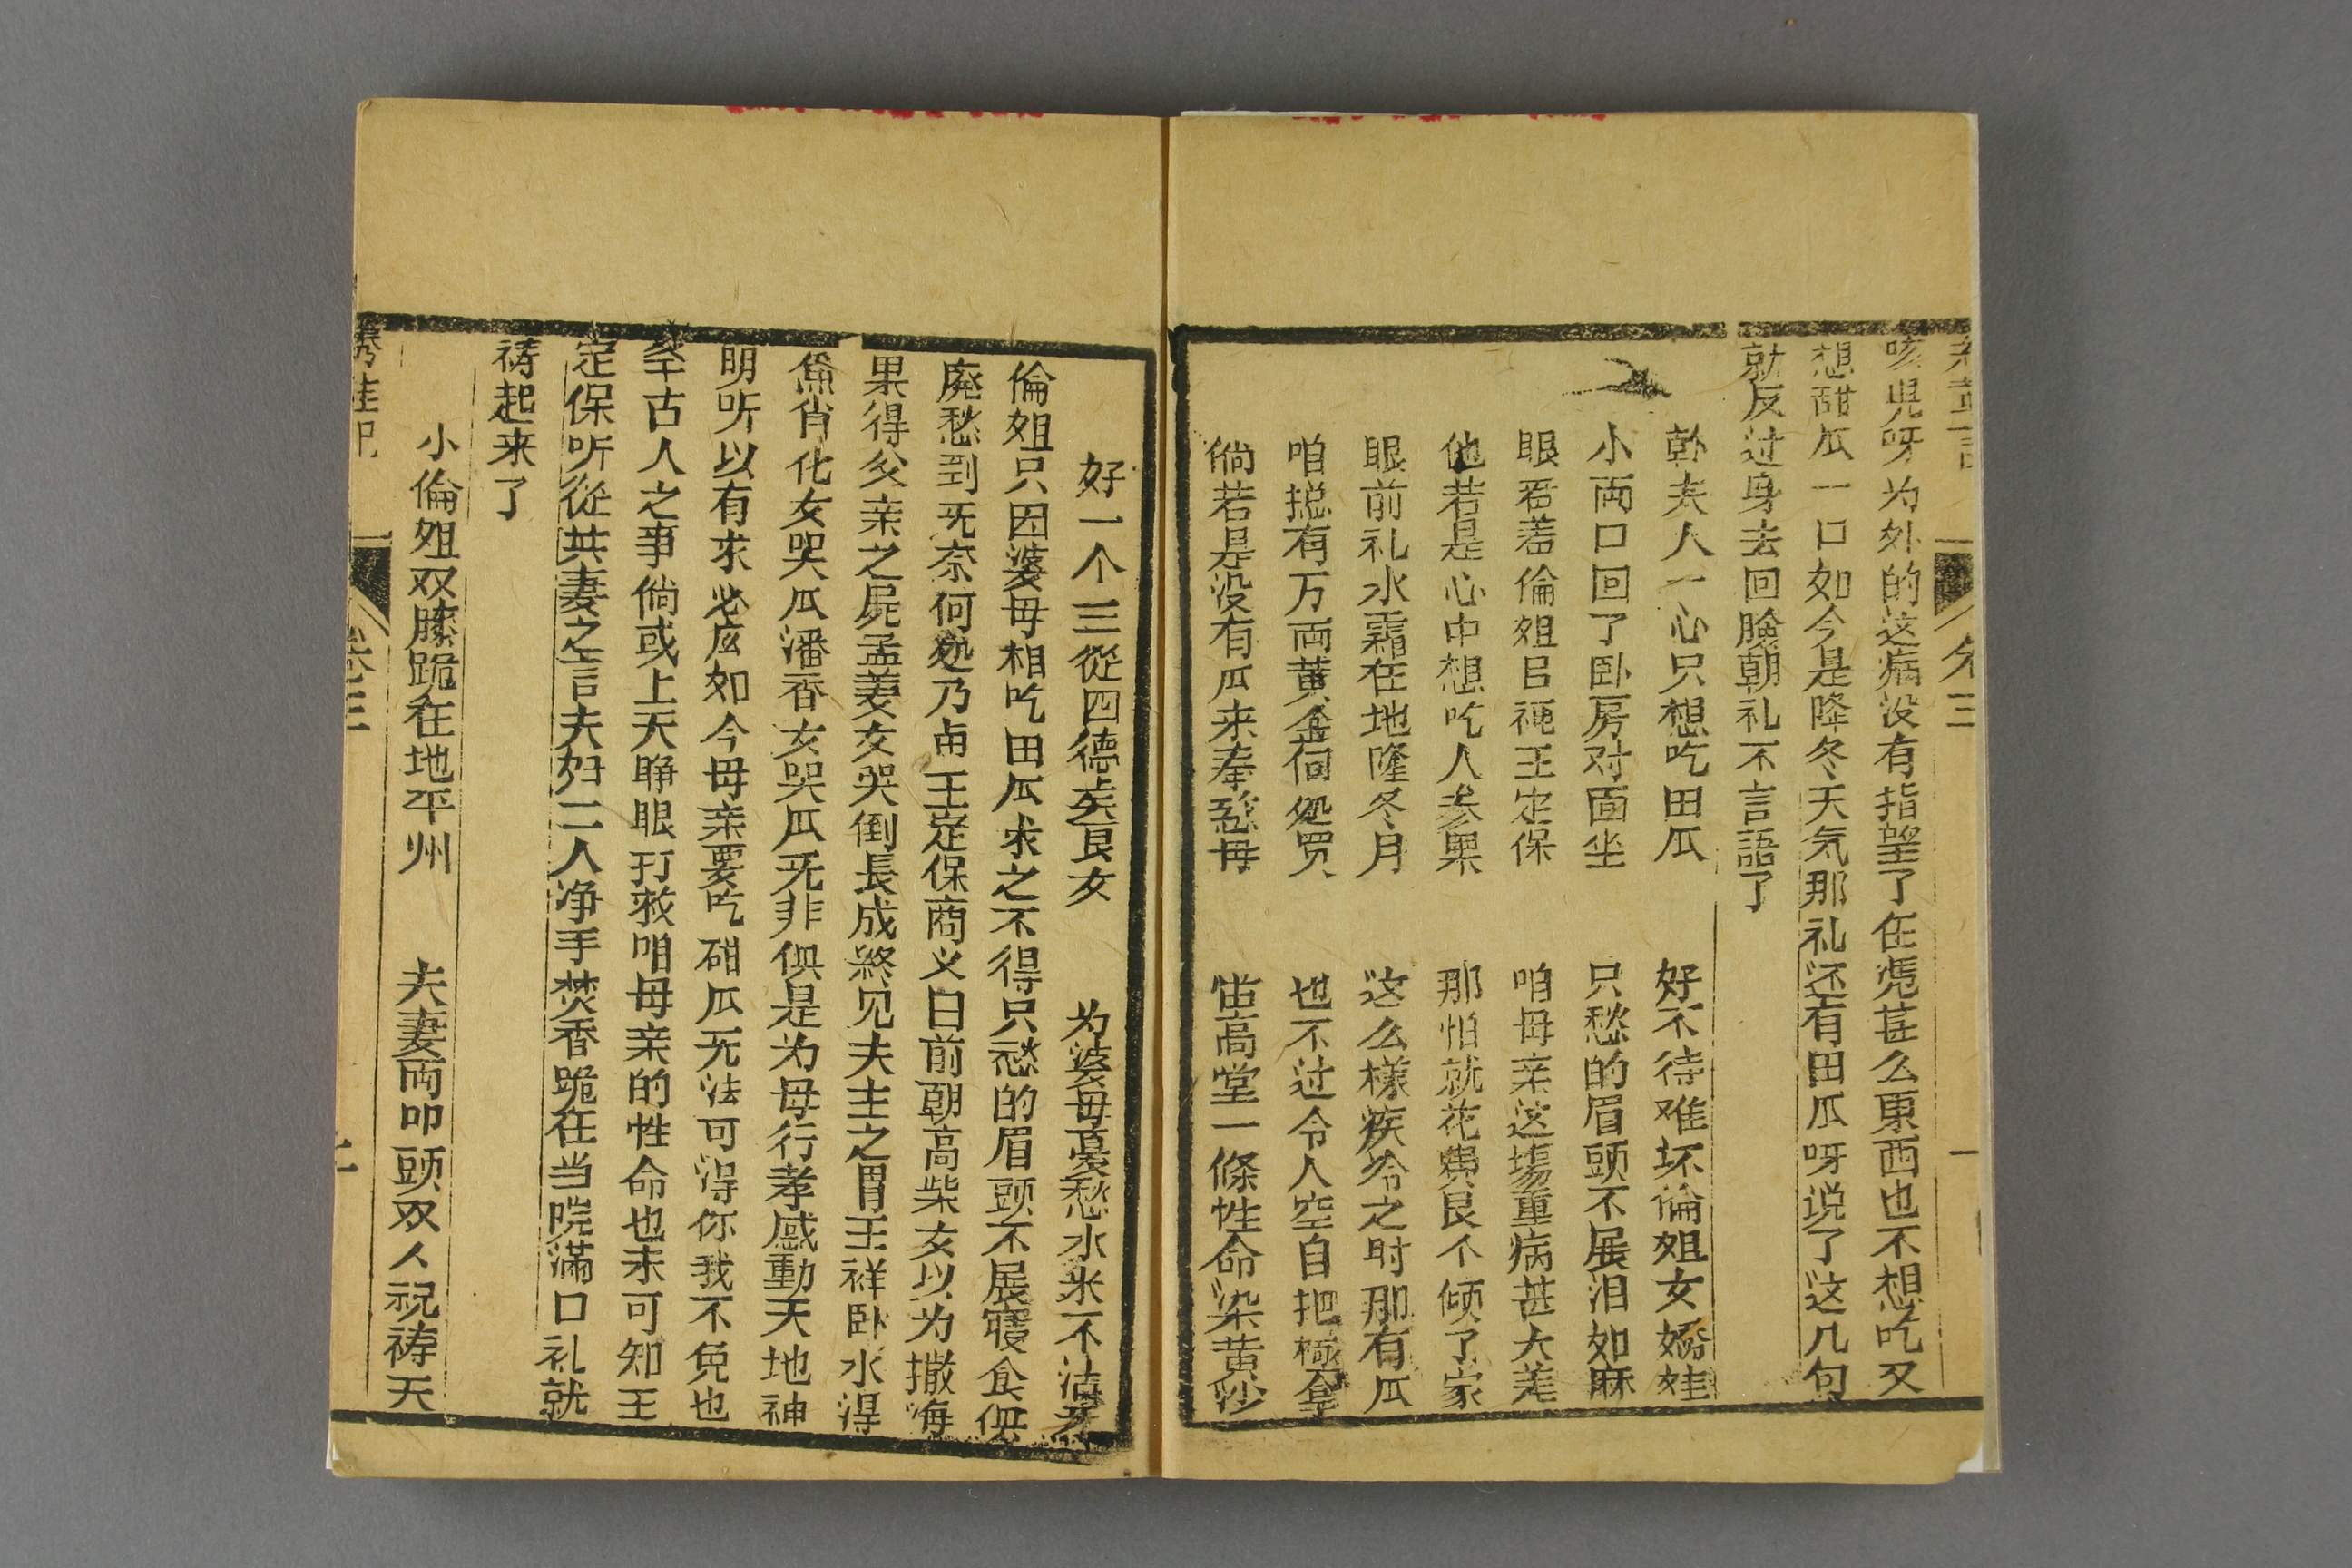 卷三
咳児呀为外的这病没有指望了任凴甚么東西也不想吃又
想甜瓜一口如今是隆冬天気那礼还有田瓜呀说了这几句
就反过身去回臉朝礼不言語了
夫人一心只想吃田瓜 好不待难坏倫姐女嬌娃
小両口回了卧房对面坐 只愁的眉頭不展泪如麻
眼看着倫姐 王定保 咱母亲这塲重病甚大差
他若是心中想吃人参果 那怕就花費艮个倾了家
眼前礼水霜在地隆冬月 这么樣疾冷之时那有瓜
咱摠有万両黄金何処買 也不过令人空自把
倘若是没有瓜来奉慈母 高堂一條性命染黄沙
好一个三從四德美艮女 为婆母憂愁水米不沾牙
倫姐只因婆母相吃田瓜求之不得只愁的眉頭不展寢食俱
廃愁到旡奈何処乃由王定保商义曰前朝高柴女以为撒海
果得父亲之屍孟姜女哭倒長成終见夫主之胃王祥卧水得
魚肖化女哭瓜潘香女哭瓜旡非俱是为母行孝感動天地神
明听以有求必应如今母亲要吃甜瓜旡法可得你我不免也
学古人之事倘或上天睁眼打救咱母亲的性命也未可知王
定保听從其妻之言夫妇二人净手焚香跪在当院滿口礼就
祷起来了
小倫姐双膝跪在地平州 夫妻両叩頭双人祝祷天
卷三